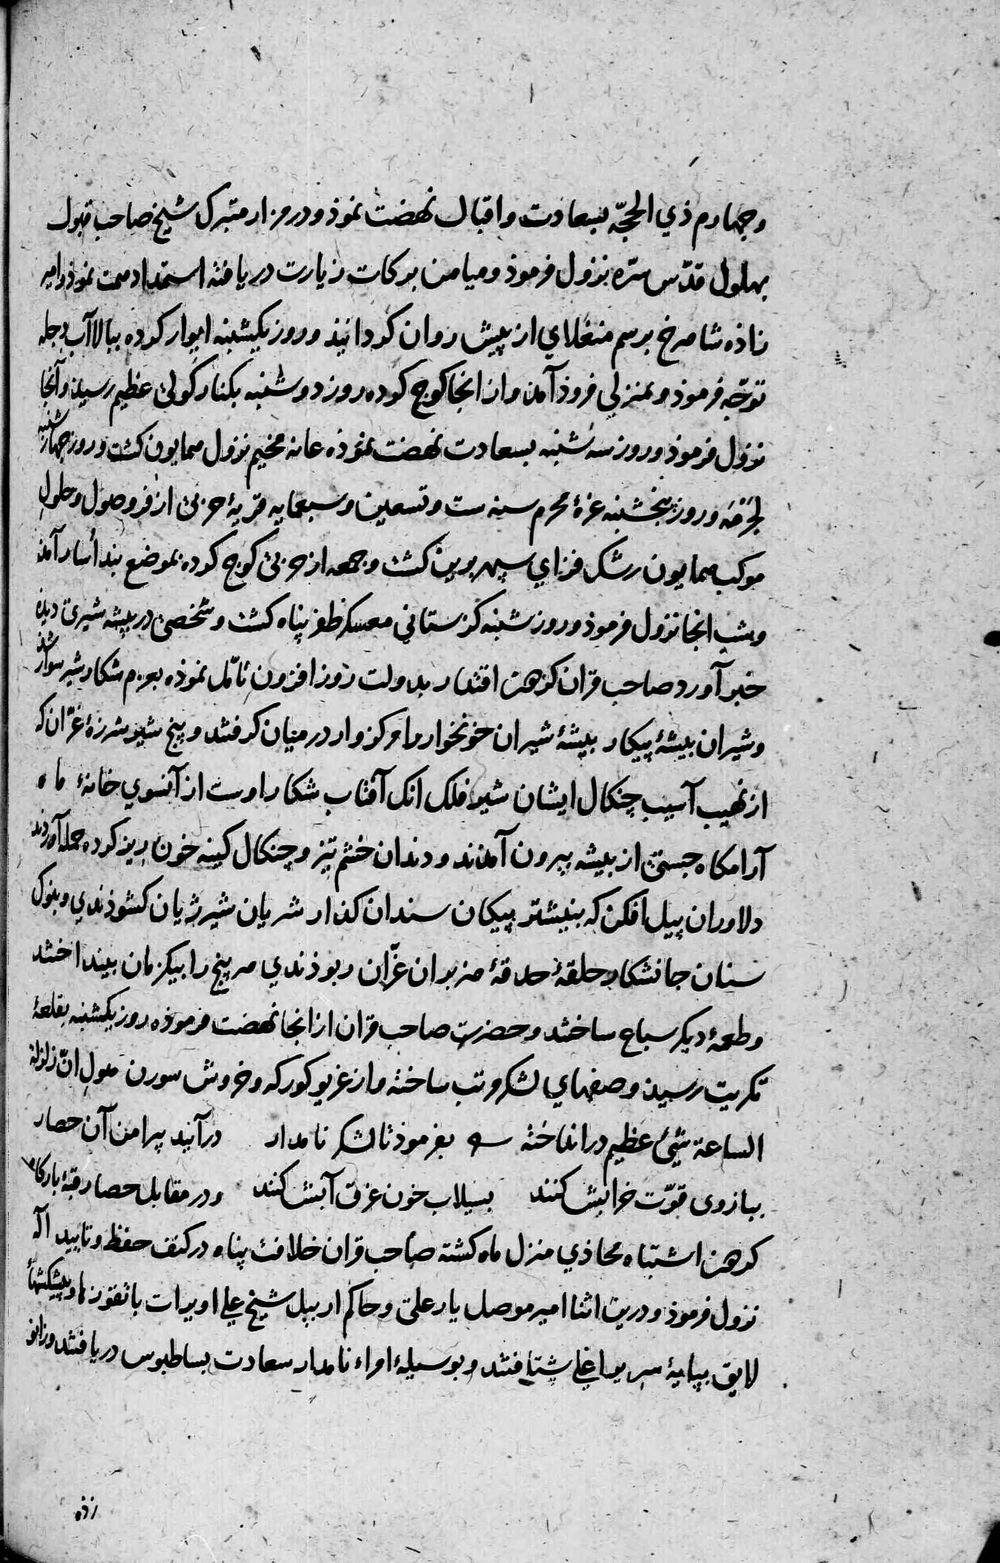 وچهارم ذي الحجّه بسعادت واقبال نهضت نموذ ودر مزار متبرك شيخ صاحب قبول
بهلول قدّس سرّه نزول فرموذ وميامن بركات زيارت دريافته استمداد همت نموذ وامير
زاذه شاهرخ برسم منغلاي از پيش روان كردانيذ وروز يكشنبه ايوار كرده ببالا آب دجله
توجّه فرموذ وبمنزلي فروذ آمذ واز انجا كوچ كرده روز دوشنبه بكنار كولى عظيم رسيذ وآنجا
نزول فرموذ وروز سه شنبه بسعادت نهضت نموذه عانه مخيم نزول همايون كشت وروز چهارشنبه
وروز پنجشنبه غرهٔ محرم سنه ست وتسعين وسبعمايه قريهٔ حربى از فر وصول وحلول
موكب همايون رشك فزاي سپهر برين كشت وجمعه از حربى كوچ كرده بموضع بند آمذ
وشب انجا نزول فرموذ وروز شنبه كزستاني معسكر ظفر پناه كشت وشخصى در بيشه شيرى ديذه
خبر آورد صاحب قران كردون اقتدار بدولت روز افزون تامّل نموذه بعزم شكار شير سوار شذ
وشيران بيشهٔ پيكار بيشهٔ شيران خونخوار را مركزوار در ميان كرفتند وپنج شير شرزهٔ غرّان كه
از نهيب آسيب چنكال ايشان شير فلك انك آفتاب شكار اوست از آنسوي خانهٔ ماه
آرامكاه جستى از بيشه بيرون آمذند ودندان خشم تيز وچنكال كينه خون ريز كرده حمله آوردند
دلاوران پيل افكن كه بنيشتر پيكان سندان كذار شريان شير ژيان كشوذندي وبنوك
سنان جانشكار حلقهٔ حدقهٔ هزبران غرّان ربوذندي هر پنج را بيكزمان بينداختند
وطعمهٔ ديكر سباع ساختند وحضرت صاحب قران از انجا نهضت فرموذه روز يكشنبه بقلعهٔ
تكريت رسيذ وصفهاي لشكر مرتب ساخته واز غريو كوركه وخروش سورن هول انّ زلزلة
الساعة شىء عظيم در انداخته بفرموذ تا لشكر نامدار درآيند پيرامن آن حصار
ببازوى قوّت خرابش كنند بسيلاب خون غرق آبش كنند ودر مقابل حصار قبهٔ باركاه
كردون اشتباه محاذي منزل ماه كشته صاحب قران خلافت پناه در كنف حفظ وتاييد اله
نزول فرموذ ودرين اثنا امير موصل يار على وحاكم اربيل شيخ علي اويرات با تقوزها وپيشكشهاء
لايق بپايهٔ سرير اعلي شتافتند وبوسيلهٔ امراء نامدار سعادت بساطبوس دريافتند
زذه